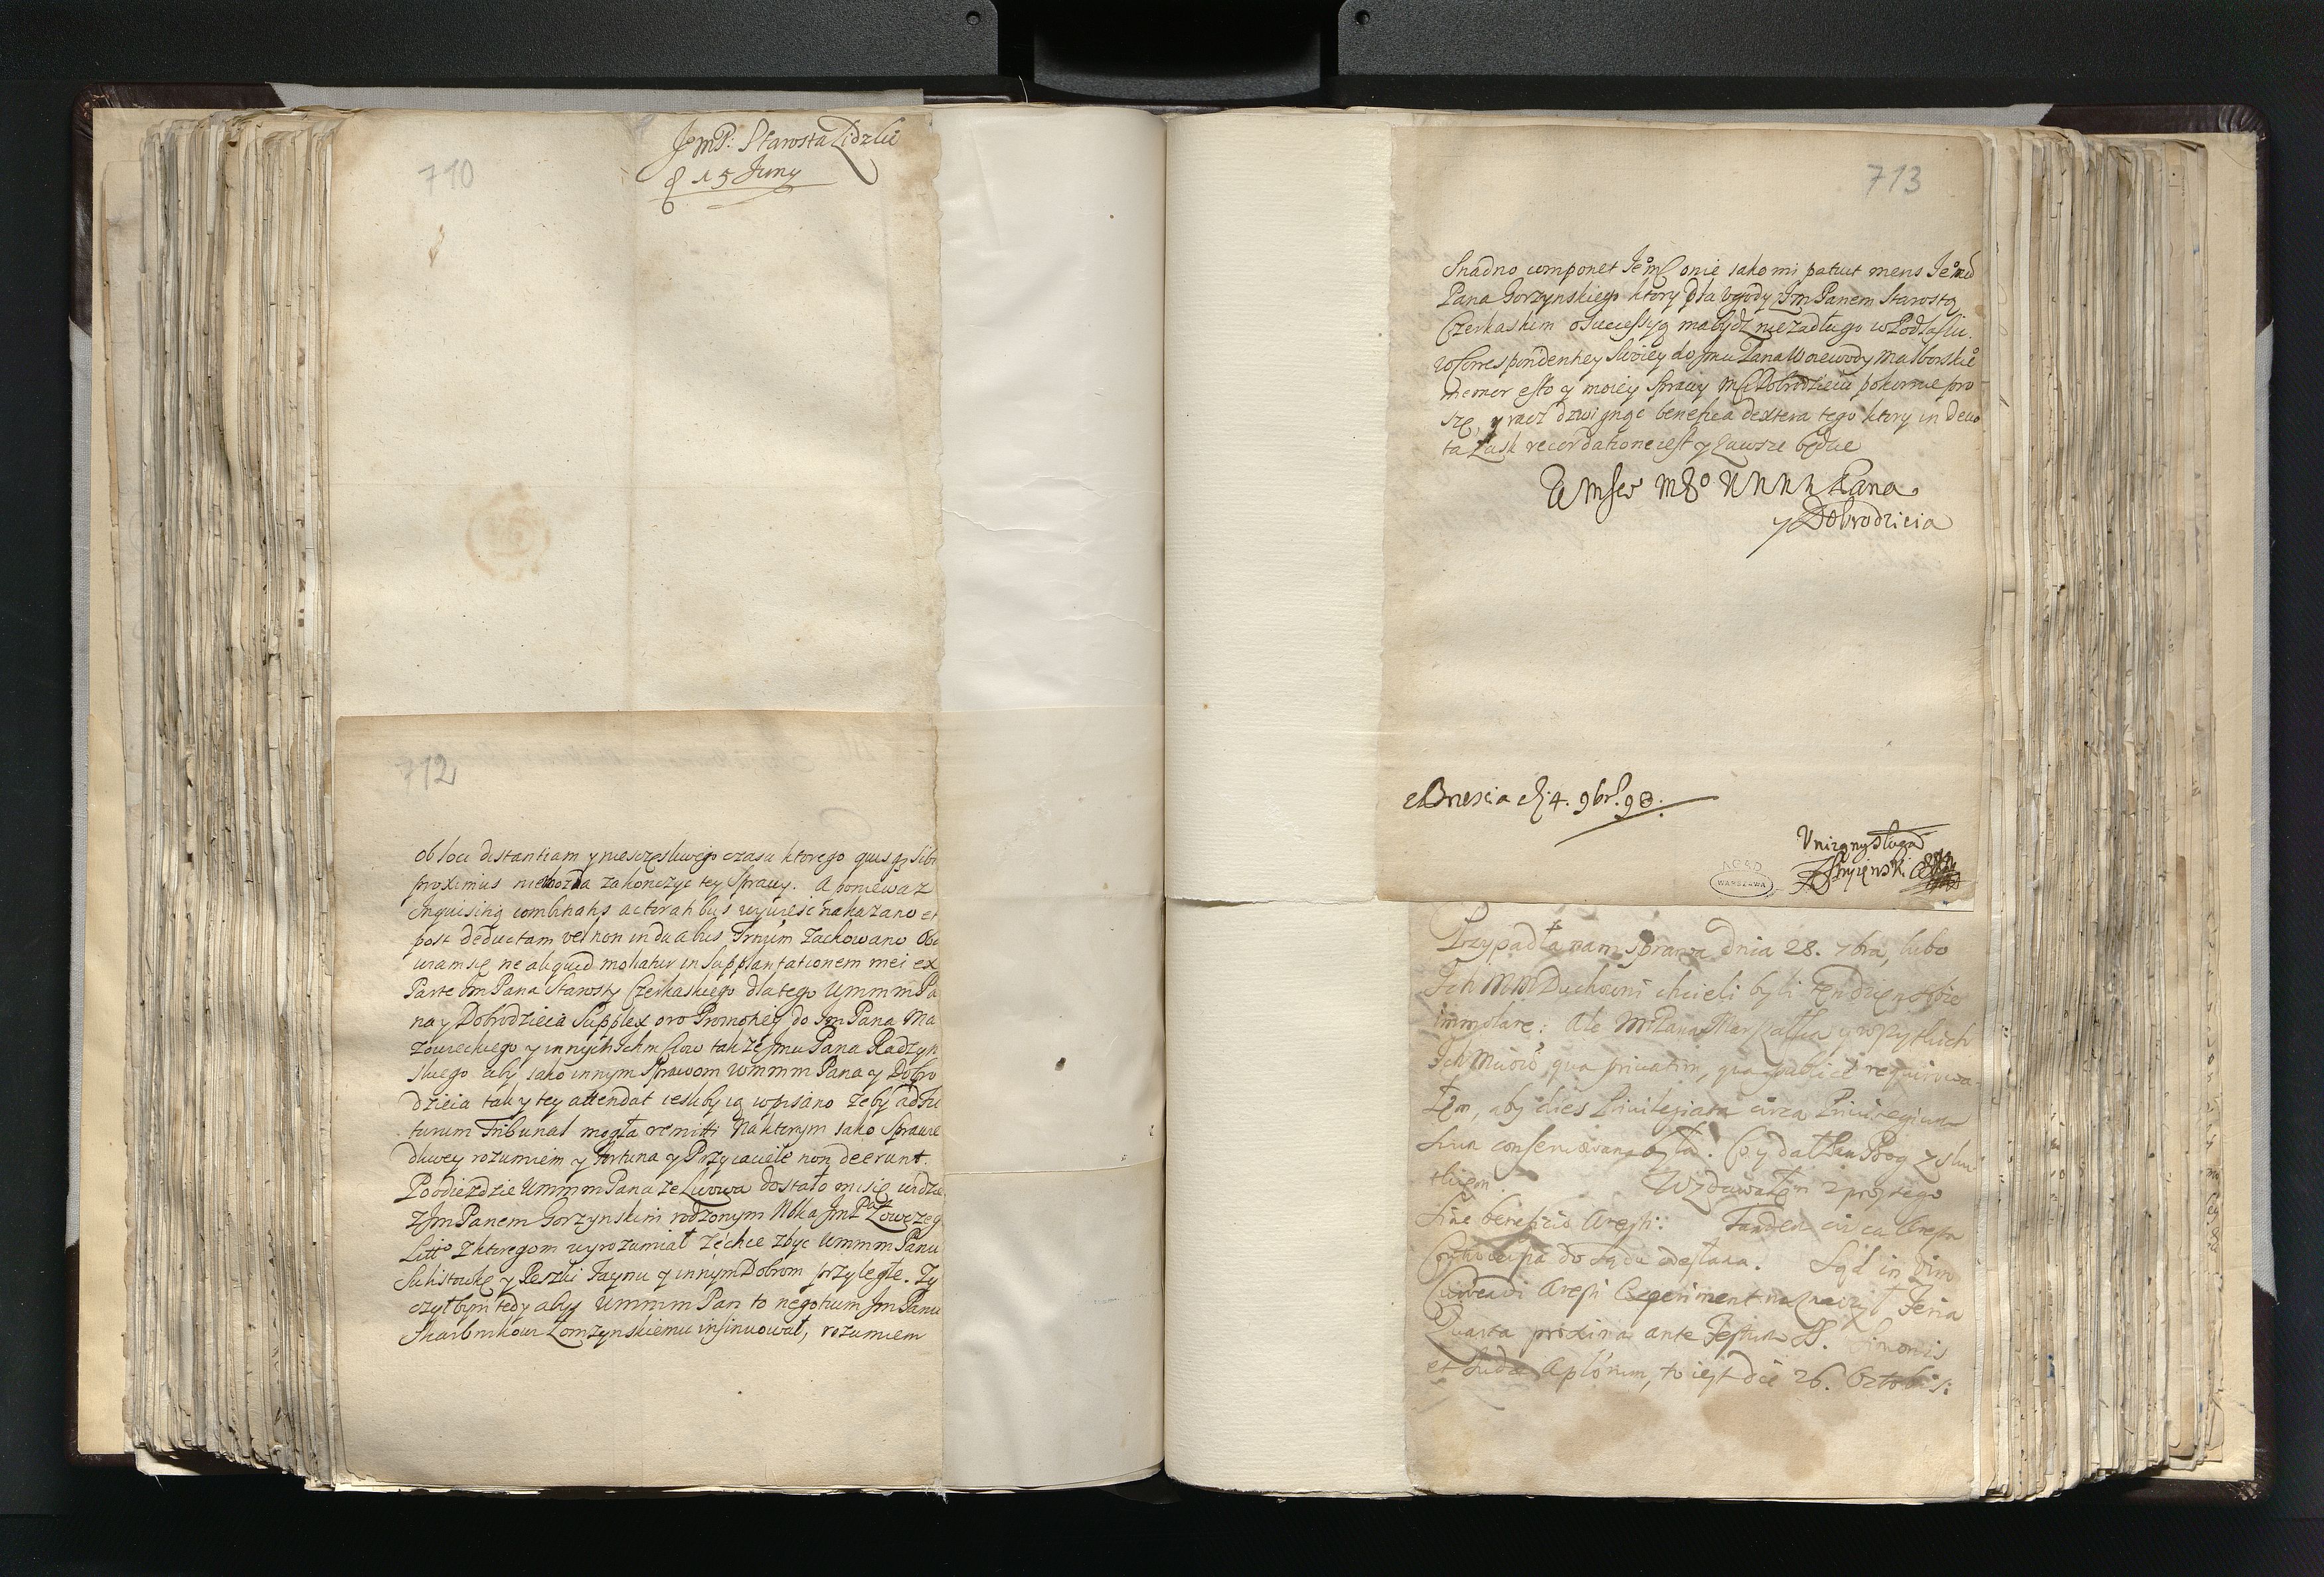 710
JmP: Starosta Lidzki
15 Juny
712
ob loci distantiam y niesczęsliwego czasu ktorego quisq3 sibi
proximus niemożna zakonczyc tey Sprawy. A poniewaz
Inquisitią combinatis actoratibus wywieść nakazano et
post deductam vel non induabus Trnum zachowano Oba
wiam się ne aliquid moliatur in supplantationem mei ex
Parte Jm Pana Starosty Czerkaskiego dlatego Ummm Pa
na y Dobrodzieia Supplex oro Promotiey do Jm Pana Ma
zowieckiego y innych Ichmsciow takze Jmu Pana Radzyn
skiego aby iako innym Sprawom Wmmm Pana y Dobro
dzieia tak y tey attendat iesliby ią wpisano zeby ad fu
turum Tribunal mogła remitti Na ktorym iako Sprawie
dliwey rozumiem y fortuna y Przyiaciele non deerunt.
Po odiezdzie Ummm Pana ze Lwowa dostało mi się widzi
z Jm Panem Gorzynskim rodzonym Jmt Pna Łowczeg
Litto z ktoregom wyrozumiał ze chce zbyc Ummm Panu
y Peszki Faynu y innym Dobrom przyległe. Zy
czył bym tedy abys Ummm Pan to negotium Jm Panu
Skarbnikowi Łomzynskiemu insinuował, rozumiem
713
Snadno componet Jemć onie iako mi patuit mens Jemci
Pana Gorzynskiego ktory dla Ugody z Jm Panem Starostą
Czerkaskim o Successyą ma bydz niezadługo w Podlasiu.
w Correspondentiey Swoiey do Jmu Pana Woiewody Malborskie
memor esto y moiey Sprawy Mći Dobrodzieiu pokornie pro
szę, y racz dzwignąc benefica dextera tego ktory in devo
ta Łask recordatione iest y zawsze będzie
WMsci M Pana
y Dobrodzieia
z Brzescia d. 4. 9br. 98.
Unizony sługa
AGAD
WARSZAWA
Przypadła nam sprawa dnia 28. 7bra, lubo
Ich Mow Duchowni chcieli byli ten dzien sobie
immolare: Ale Mr Pana Marszałka y wszytkich
Ich Mciow, qua privatim, qua publice requirowa
łem, aby dies Privilegiata circa Privilegium
sua conserwowana była. Co y dał Pan Bog zysku
Wzdawałem z prostego
sine beneficio Aresti: Tandem circa Arest
do sądu odesłana. Sąd in vim
Aresti Experiment naznaczył Feria
Quarta proxima ante Festum SS. Simonis
et Judae Aplorum, to iest die 26. Octobris: